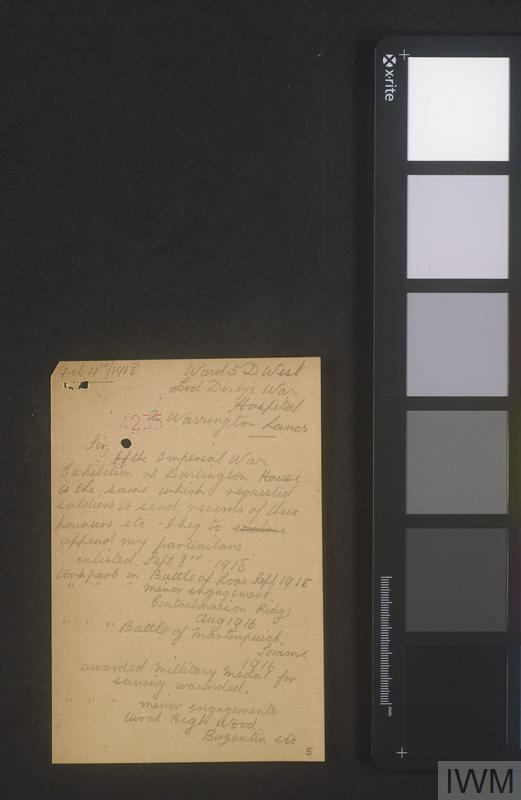 Feb 4th/1918 Ward 5 D West
Lord Derby's War
Hospital
Warrington Lancs.
4235
Sir,
If the Imperial War
Exhibition at Burlington House
is the same which requested
soldiers to send records of their
honours etc - I beg to enclose
append my particulars
enlisted Sept 8th 1915
took part in Battle of Loos Sept 1915
" " " minor engagement
Contalmaison Ridge
Aug 1916.
" " " Battle of Martenpuich,
Somme
1916
awarded Millitary Medal for
saving wounded.
" " " minor engagements
High Wood
Bazentin etc
5
x-rite
mm
IWM